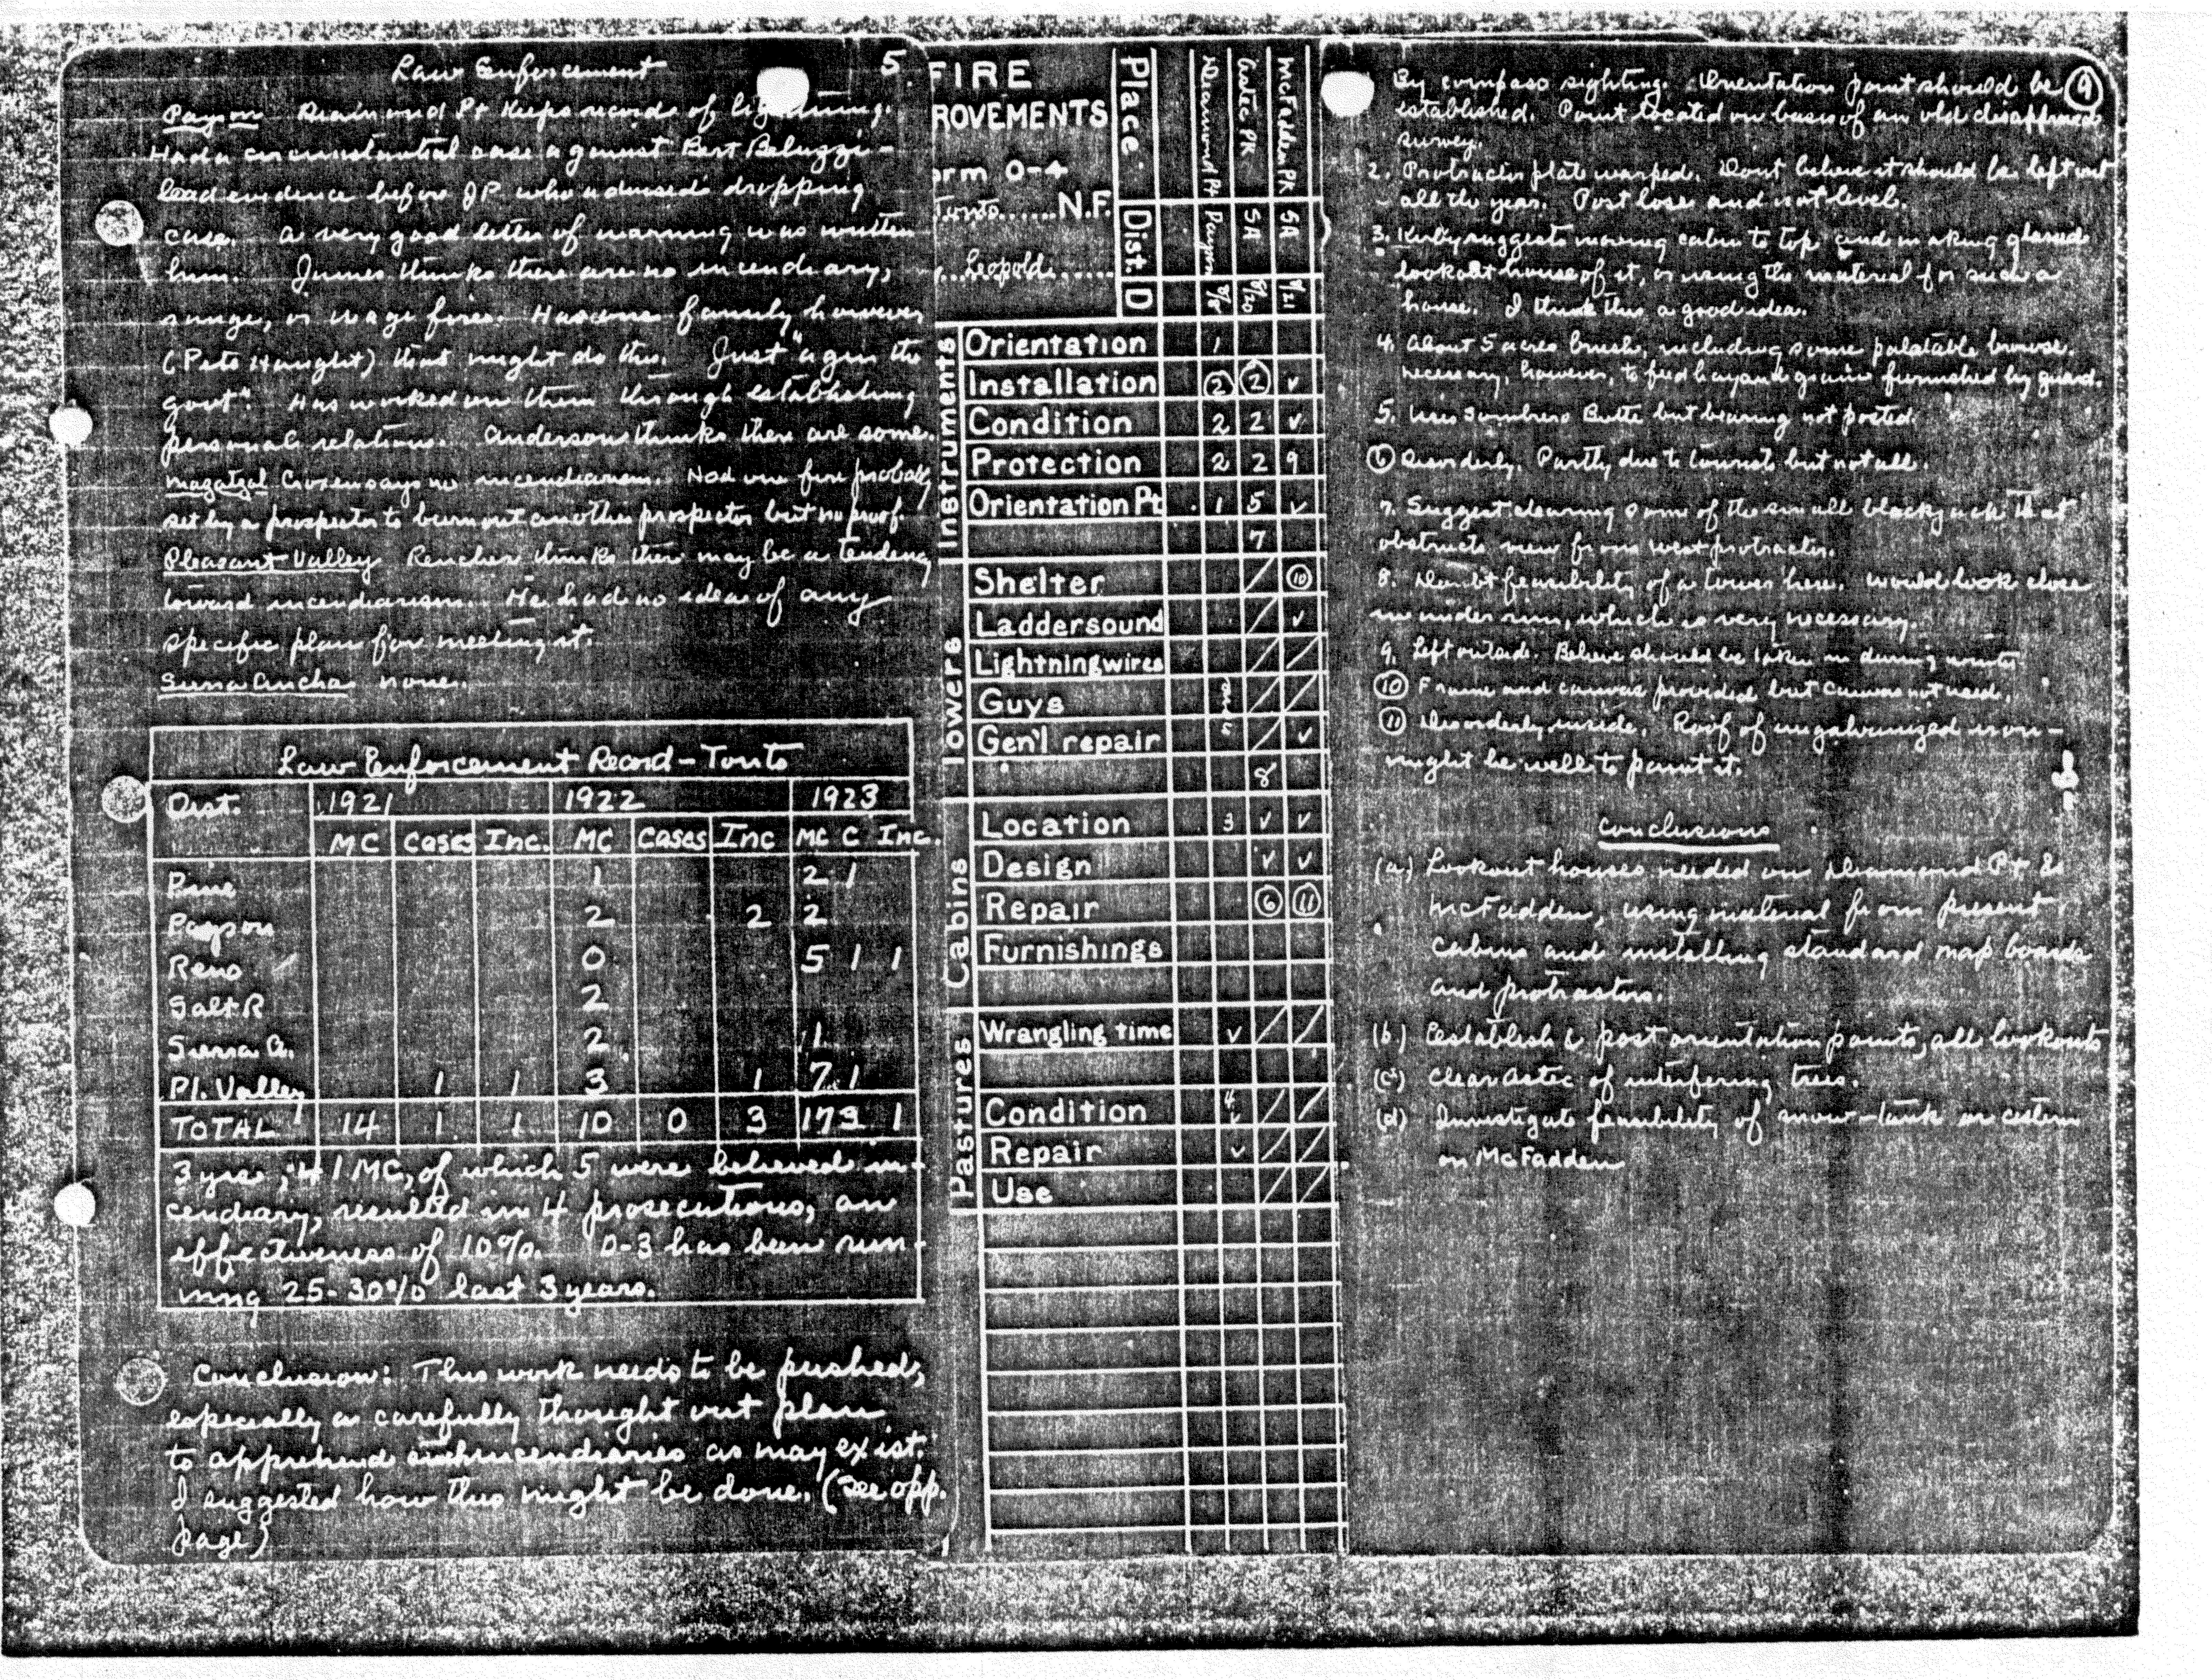 Law Enforcement 5.
Payson Diamond Pt keeps record of lightning.
Had a circumstantial case against Bert Beluzzi -
lead evidence before JP who advised dropping
case. A very good letter of warning was written
him. James thinks there are no incendiary,
grudge, or wage fires. Has one family however
(Pete Haught) that might do this. Just "agin the
govt". Has worked on them through establishing
personal relations. Anderson thinks there are some.
Mazatzal Croxen says no incendiarism. Had one fire probably
set by a prospector to burn out another prospector but no proof.
Pleasant Valley Rencher thinks there may be a tendency
toward incendiarism. He had no idea of any
specific plan for meeting it.
Sierra Ancha none.
Law Enforcement Record - Tonto
Dist. 1921 1922 1923
MC Cases Inc. MC Cases Inc MC C Inc.
Pine 1 2 1
Payson 2 2 2
Reno 0 5 1 1
Salt R 2
Sierra A. 2 1
Pl. Valley 1 1 3 1 7 1
TOTAL 14 1 1 10 0 3 17 3 1
3 yrs, 41 MC, of which 5 were believed in-
cendiary, resulted in 4 prosecutions, an
effectiveness of 10%. D-3 has been run-
ning 25-30% last 3 years.
Conclusion: This work needs to be pushed,
especially a carefully thought out plan
to apprehend such incendiaries as may exist.
I suggested how this might be done. (See opp.
page)
FIRE
ROVEMENTS
orm O-4
Tonto......N.F.
Leopold......
Place Diamond Pt Aztec PK McFadden PK
Dist. Payson SA SA
D 8/8 8/20 8/21
Instruments
Orientation 1
Installation 2 2 ✓
Condition 2 2 ✓
Protection 2 2 9
Orientation Pt 1 5 ✓
7
Towers
Shelter / 10
Laddersound / ✓
Lightningwires / /
Guys / /
Gen'l repair / ✓
8
Cabins
Location 3 ✓ ✓
Design ✓ ✓
Repair 6 11
Furnishings
Pastures
Wrangling time ✓ / /
Condition 4 ✓ / /
Repair ✓ / /
Use / /
By compass sighting. Orientation point should be 9
established. Point located on basis of an old disapproved
survey.
2. Protractor plate warped. Dont believe it should be left out
all the year. Post loose and not level.
3. Kirby suggests moving cabin to top and making glassed
lookout house of it, or using the material for such a
house. I think this a good idea.
4. About 5 acres brush, including some palatable browse.
necessary, however, to feed hay and grain furnished by guard.
5. Uses Sombrero Butte but bearing not posted.
6 Disorderly. Partly due to tourists but not all.
7. Suggest clearing some of the small blackjack that
obstructs view from west protractor.
8. Doubt feasibility of a tower here. Would look close
in under rim, which is very necessary.
9. Left outside. Believe should be taken in during winter.
10 Frame and canvas provided but canvas not used.
11 Disorderly inside. Roof of ungalvanized iron -
might be well to paint it.
Conclusions
(a) Lookout houses needed on Diamond Pt &
McFadden, using material from present
cabins and installing standard map boards
and protractors.
(b) Establish & post orientation points, all lookouts
(c) Clear Aztec of interfering trees.
(d) Investigate feasibility of snow-tank or cistern
on McFadden